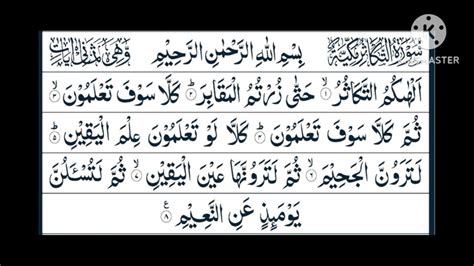 سُوْرَةُ التَّكَاثُرِ مَكِّيَّةٌ بِسْمِ اللّٰهِ الرَّحْمٰنِ الرَّحِيْمِ وَّهِيَ ثَمَانِيْ اٰيَاتٍ
اَلْهٰىكُمُ التَّكَاثُرُ ۙ۱ حَتّٰى زُرْتُمُ الْمَقَابِرَ ؕ۲ كَلَّا سَوْفَ تَعْلَمُوْنَ ۙ۳
ثُمَّ كَلَّا سَوْفَ تَعْلَمُوْنَ ؕ۴ كَلَّا لَوْ تَعْلَمُوْنَ عِلْمَ الْيَقِيْنِ ؕ۵
لَتَرَوُنَّ الْجَحِيْمَ ۙ۶ ثُمَّ لَتَرَوُنَّهَا عَيْنَ الْيَقِيْنِ ۙ۷ ثُمَّ لَتُسْـَٔلُنَّ
يَوْمَىِٕذٍ عَنِ النَّعِيْمِ ۸ ع